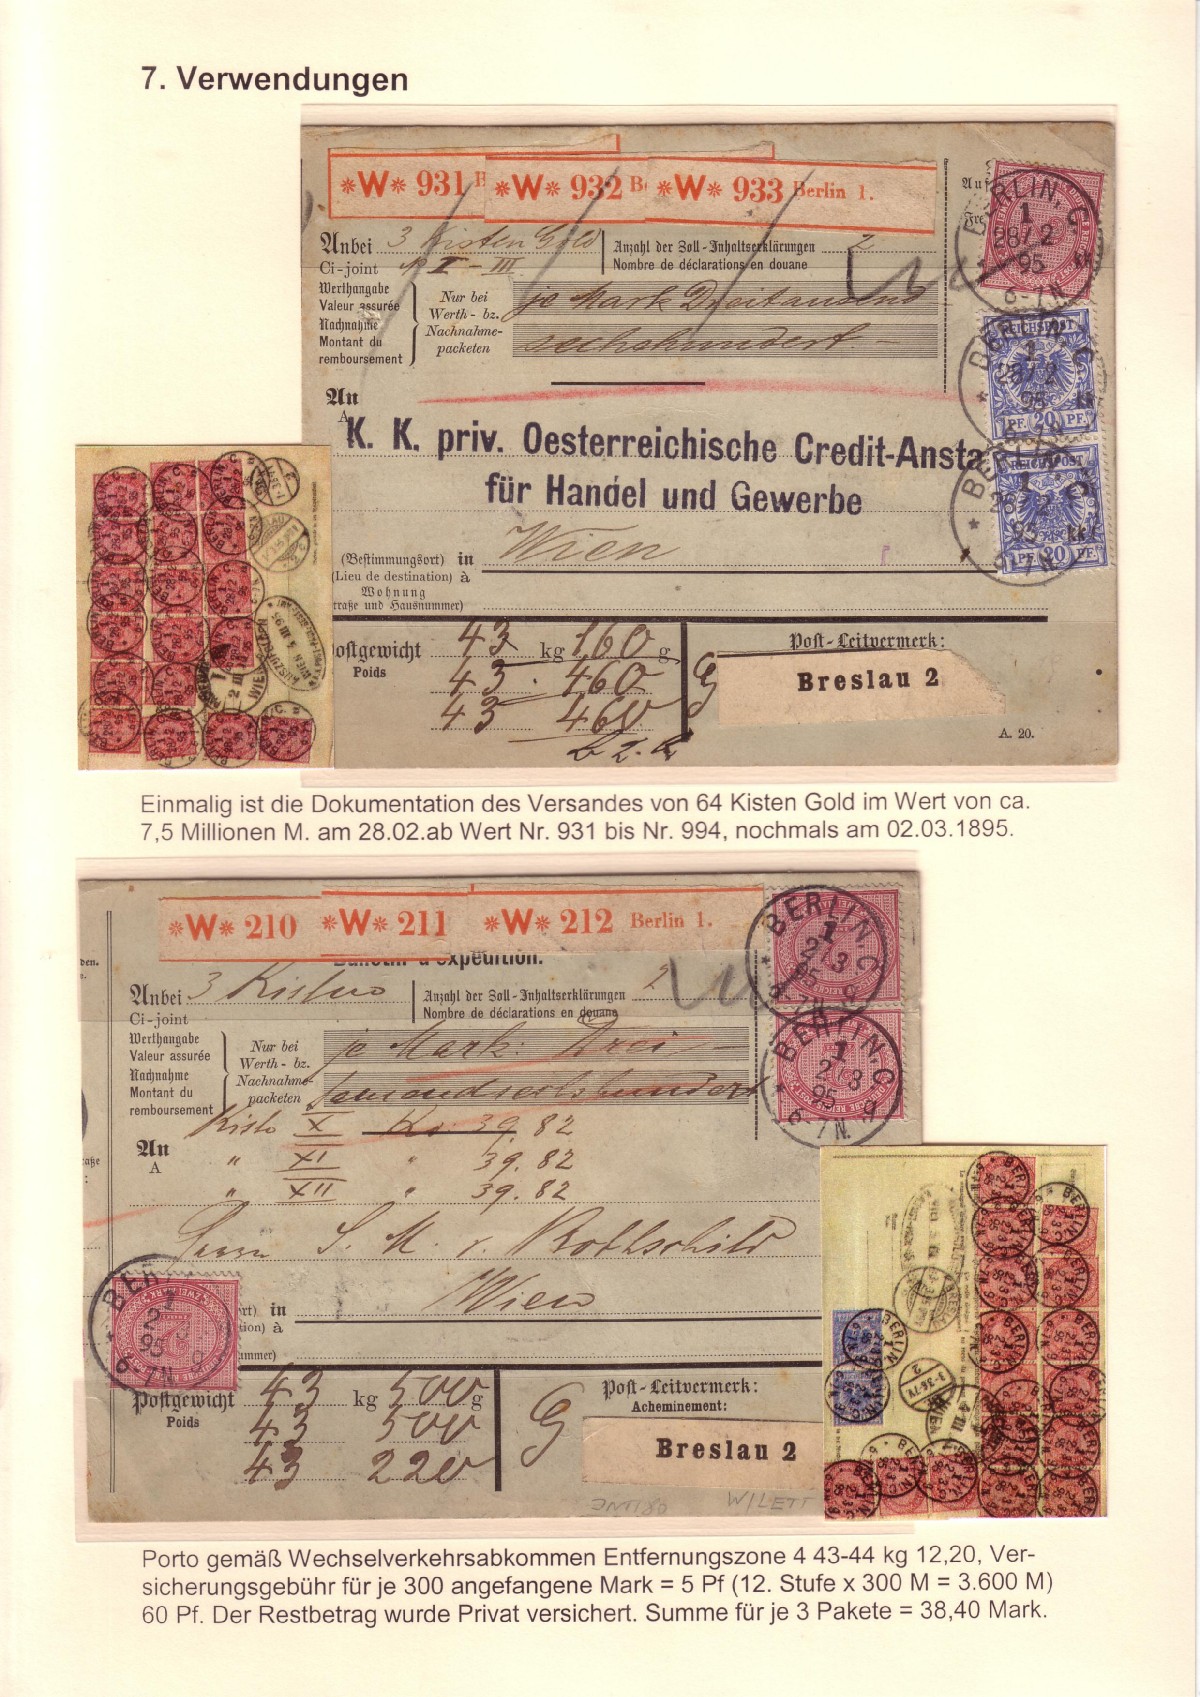 7. Verwendungen
*W* 931 B *W* 932 Be *W* 933 Berlin 1.
Anbei 3 Kisten Gold
Ci-joint No I - III
Anzahl der Zoll-Inhaltserklärungen 2
Nombre de déclarations en douane
Werthangabe
Valeur assurée
Nachnahme
Montant du
remboursement
Nur bei
Werth- bz.
Nachnahme-
packeten
je Mark Dreitausend
sechshundert
BERLIN. C.
1
28/2
95
6-7N.
REICHSPOST
PF. 20 PF.
REICHSPOST
PF. 20 PF.
An
A
K. K. priv. Oesterreichische Credit-Ansta
für Handel und Gewerbe
(Bestimmungsort) in Wien
(Lieu de destination) à
Wohnung
traße und Hausnummer)
Postgewicht 43 kg 160 g
Poids 43. 460
43 460
Post-Leitvermerk:
Breslau 2
A. 20.
Einmalig ist die Dokumentation des Versandes von 64 Kisten Gold im Wert von ca.
7,5 Millionen M. am 28.02.ab Wert Nr. 931 bis Nr. 994, nochmals am 02.03.1895.
*W* 210 *W* 211 *W* 212 Berlin 1.
Bulletin d'expédition.
Anbei 3 Kisten
Ci-joint
Anzahl der Zoll-Inhaltserklärungen 2
Nombre de déclarations en douane
Werthangabe
Valeur assurée
Nachnahme
Montant du
remboursement
Nur bei
Werth- bz.
Nachnahme-
packeten
je Mark: Drei-
tausendsechshundert
BERLIN. C
1
2/3
95
6-7N.
Kisto X Ko. 39.82
An " XI " 39.82
A " XII " 39.82
Herrn S. M. v. Rothschild
in Wien
à
Postgewicht 43 kg 500
Poids 43 500
43 220
Post-Leitvermerk:
Acheminement:
Breslau 2
WILETT
Porto gemäß Wechselverkehrsabkommen Entfernungszone 4 43-44 kg 12,20, Ver-
sicherungsgebühr für je 300 angefangene Mark = 5 Pf (12. Stufe x 300 M = 3.600 M)
60 Pf. Der Restbetrag wurde Privat versichert. Summe für je 3 Pakete = 38,40 Mark.